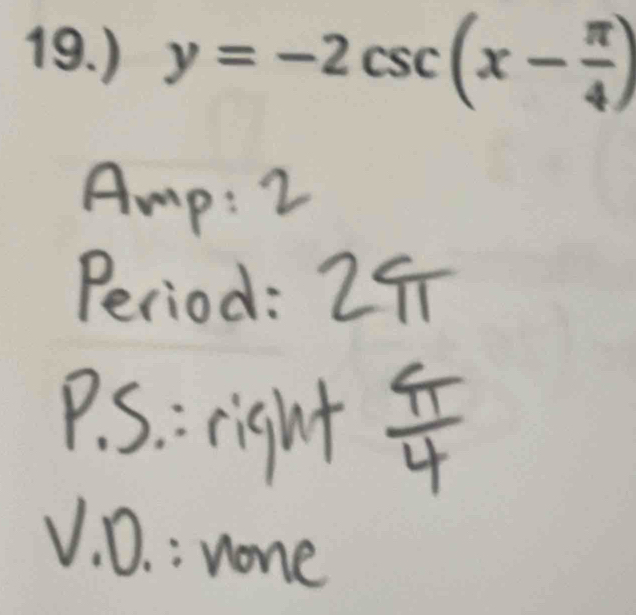 19.) y = -2 csc(x - π/4)
Amp: 2
Period: 2π
P.S.: right π/4
V.D.: none